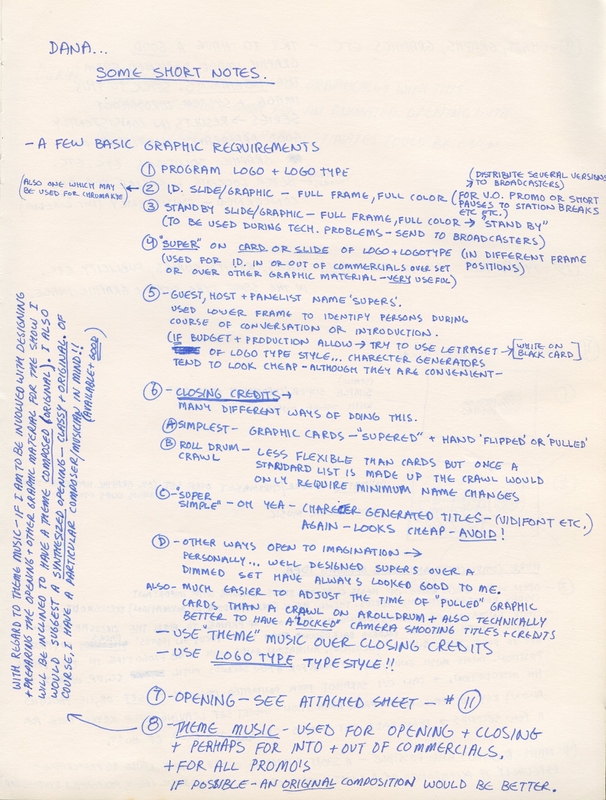 DANA...
SOME SHORT NOTES.
- A FEW BASIC GRAPHIC REQUIREMENTS
① PROGRAM LOGO + LOGO TYPE
(DISTRIBUTE SEVERAL VERSIONS
TO BROADCASTERS)
(ALSO ONE WHICH MAY
BE USED FOR CHROMAKYE)
② I.D. SLIDE/GRAPHIC - FULL FRAME, FULL COLOR (FOR V.O. PROMO OR SHORT
PAUSES TO STATION BREAKS
ETC ETC.)
③ STANDBY SLIDE/GRAPHIC - FULL FRAME, FULL COLOR → "STAND BY"
(TO BE USED DURING TECH. PROBLEMS - SEND TO BROADCASTERS)
④ "SUPER" ON CARD OR SLIDE OF LOGO + LOGOTYPE (IN DIFFERENT FRAME
POSITIONS)
(USED FOR I.D. IN OR OUT OF COMMERCIALS OVER SET
OR OVER OTHER GRAPHIC MATERIAL - VERY USEFUL)
⑤ - GUEST, HOST + PANELIST NAME 'SUPERS'.
USED LOWER FRAME TO IDENTIFY PERSONS DURING
COURSE OF CONVERSATION OR INTRODUCTION.
(IF BUDGET + PRODUCTION ALLOW → TRY TO USE LETRASET → [WHITE ON
BLACK CARD]
OF LOGO TYPE STYLE... CHARECTER GENERATORS
TEND TO LOOK CHEAP - ALTHOUGH THEY ARE CONVENIENT -
⑥ - CLOSING CREDITS →
MANY DIFFERENT WAYS OF DOING THIS.
Ⓐ SIMPLEST - GRAPHIC CARDS - "SUPERED" + HAND 'FLIPPED' OR 'PULLED'
Ⓑ ROLL DRUM - LESS FLEXIBLE THAN CARDS BUT ONCE A
CRAWL STANDARD LIST IS MADE UP THE CRAWL WOULD
ONLY REQUIRE MINIMUM NAME CHANGES
Ⓒ - "SUPER
SIMPLE" - OH YEA - CHARECTER GENERATED TITLES - (VIDIFONT ETC.)
AGAIN - LOOKS CHEAP - AVOID!
Ⓓ - OTHER WAYS OPEN TO IMAGINATION →
PERSONALLY... WELL DESIGNED SUPERS OVER A
DIMMED SET HAVE ALWAYS LOOKED GOOD TO ME.
ALSO - MUCH EASIER TO ADJUST THE TIME OF "PULLED" GRAPHIC
CARDS THAN A CRAWL ON A ROLLDRUM + ALSO TECHNICALLY
BETTER TO HAVE A "LOCKED" CAMERA SHOOTING TITLES + CREDITS
- USE "THEME" MUSIC OVER CLOSING CREDITS
- USE LOGO TYPE TYPESTYLE!!
⑦ - OPENING - SEE ATTACHED SHEET - # ⑪
⑧ - THEME MUSIC - USED FOR OPENING + CLOSING
+ PERHAPS FOR INTO + OUT OF COMMERCIALS,
+ FOR ALL PROMO'S
IF POSSIBLE - AN ORIGINAL COMPOSITION WOULD BE BETTER.
WITH REGARD TO THEME MUSIC - IF I AM TO BE INVOLVED WITH DESIGNING
+ PREPARING THE OPENING + OTHER GRAPHIC MATERIAL FOR THE SHOW I
WILL BE INCLINED TO HAVE A THEME COMPOSED (ORIGINAL). I ALSO
WOULD SUGGEST A SYNTHESIZED OPENING - CLASSY + ORIGINAL. OF
COURSE, I HAVE A PARTICULAR COMPOSER/MUSICIAN IN MIND!!
(AVAILABLE + GOOD)